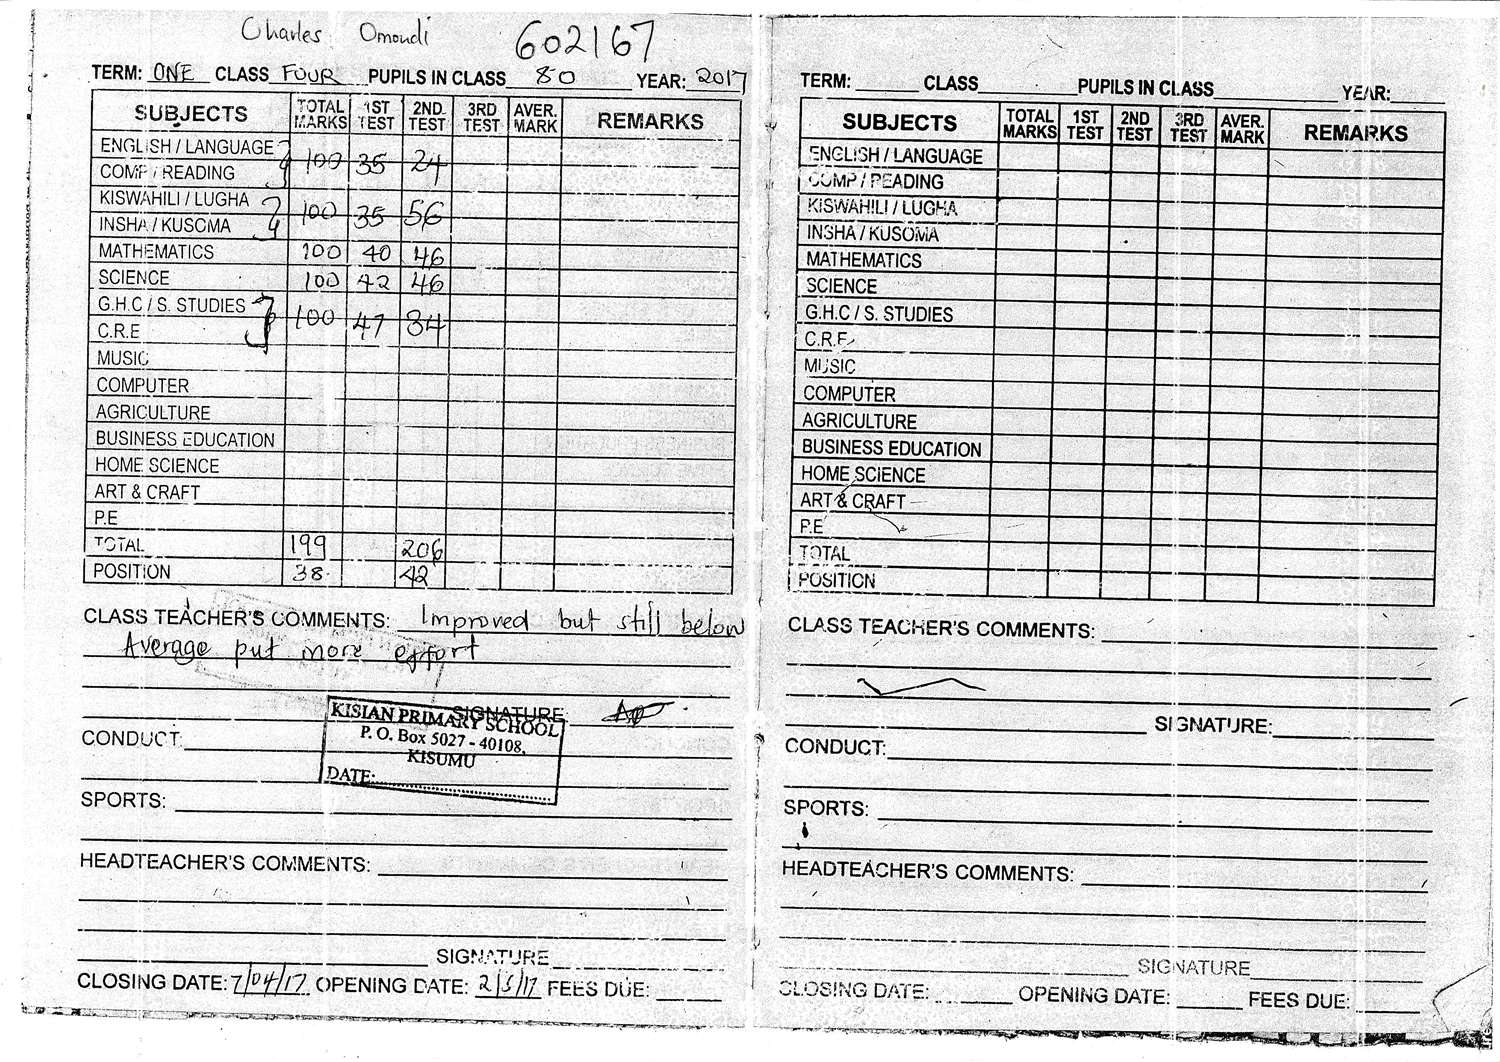 Charles Omondi 602167
TERM: ONE CLASS FOUR PUPILS IN CLASS 80 YEAR: 2017
SUBJECTS TOTAL MARKS 1ST TEST 2ND TEST 3RD TEST AVER. MARK REMARKS
ENGLISH / LANGUAGE
COMP / READING 100 35 24
KISWAHILI / LUGHA
INSHA / KUSOMA 100 35 56
MATHEMATICS 100 40 46
SCIENCE 100 42 46
G.H.C / S. STUDIES
C.R.E 100 47 34
MUSIC
COMPUTER
AGRICULTURE
BUSINESS EDUCATION
HOME SCIENCE
ART & CRAFT
P.E
TOTAL 199 206
POSITION 38 42
CLASS TEACHER'S COMMENTS: Improved but still below
Average put more effort
SIGNATURE:
KISIAN PRIMARY SCHOOL
P. O. Box 5027 - 40108,
KISUMU
DATE:
CONDUCT:
SPORTS:
HEADTEACHER'S COMMENTS:
SIGNATURE
CLOSING DATE: 7/04/17 OPENING DATE: 2/5/17 FEES DUE:
TERM: CLASS PUPILS IN CLASS YEAR:
SUBJECTS TOTAL MARKS 1ST TEST 2ND TEST 3RD TEST AVER. MARK REMARKS
ENGLISH / LANGUAGE
COMP / READING
KISWAHILI / LUGHA
INSHA / KUSOMA
MATHEMATICS
SCIENCE
G.H.C / S. STUDIES
C.R.E
MUSIC
COMPUTER
AGRICULTURE
BUSINESS EDUCATION
HOME SCIENCE
ART & CRAFT
P.E
TOTAL
POSITION
CLASS TEACHER'S COMMENTS:
SIGNATURE:
CONDUCT:
SPORTS:
HEADTEACHER'S COMMENTS:
SIGNATURE
CLOSING DATE: OPENING DATE: FEES DUE: